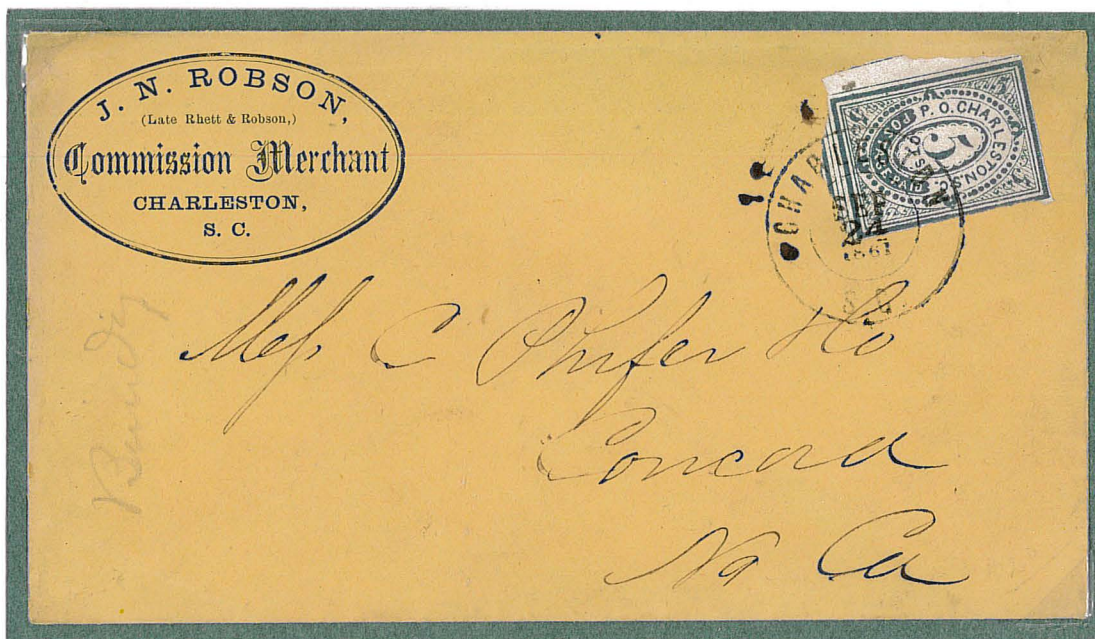 J. N. ROBSON,
(Late Rhett & Robson,)
Commission Merchant
CHARLESTON,
S. C.
P. O. CHARLESTON, S. C.
POSTAGE
5
CHARLESTON
SEP
24
1861
S C
Mess C Phifer & Co
Concord
No Ca